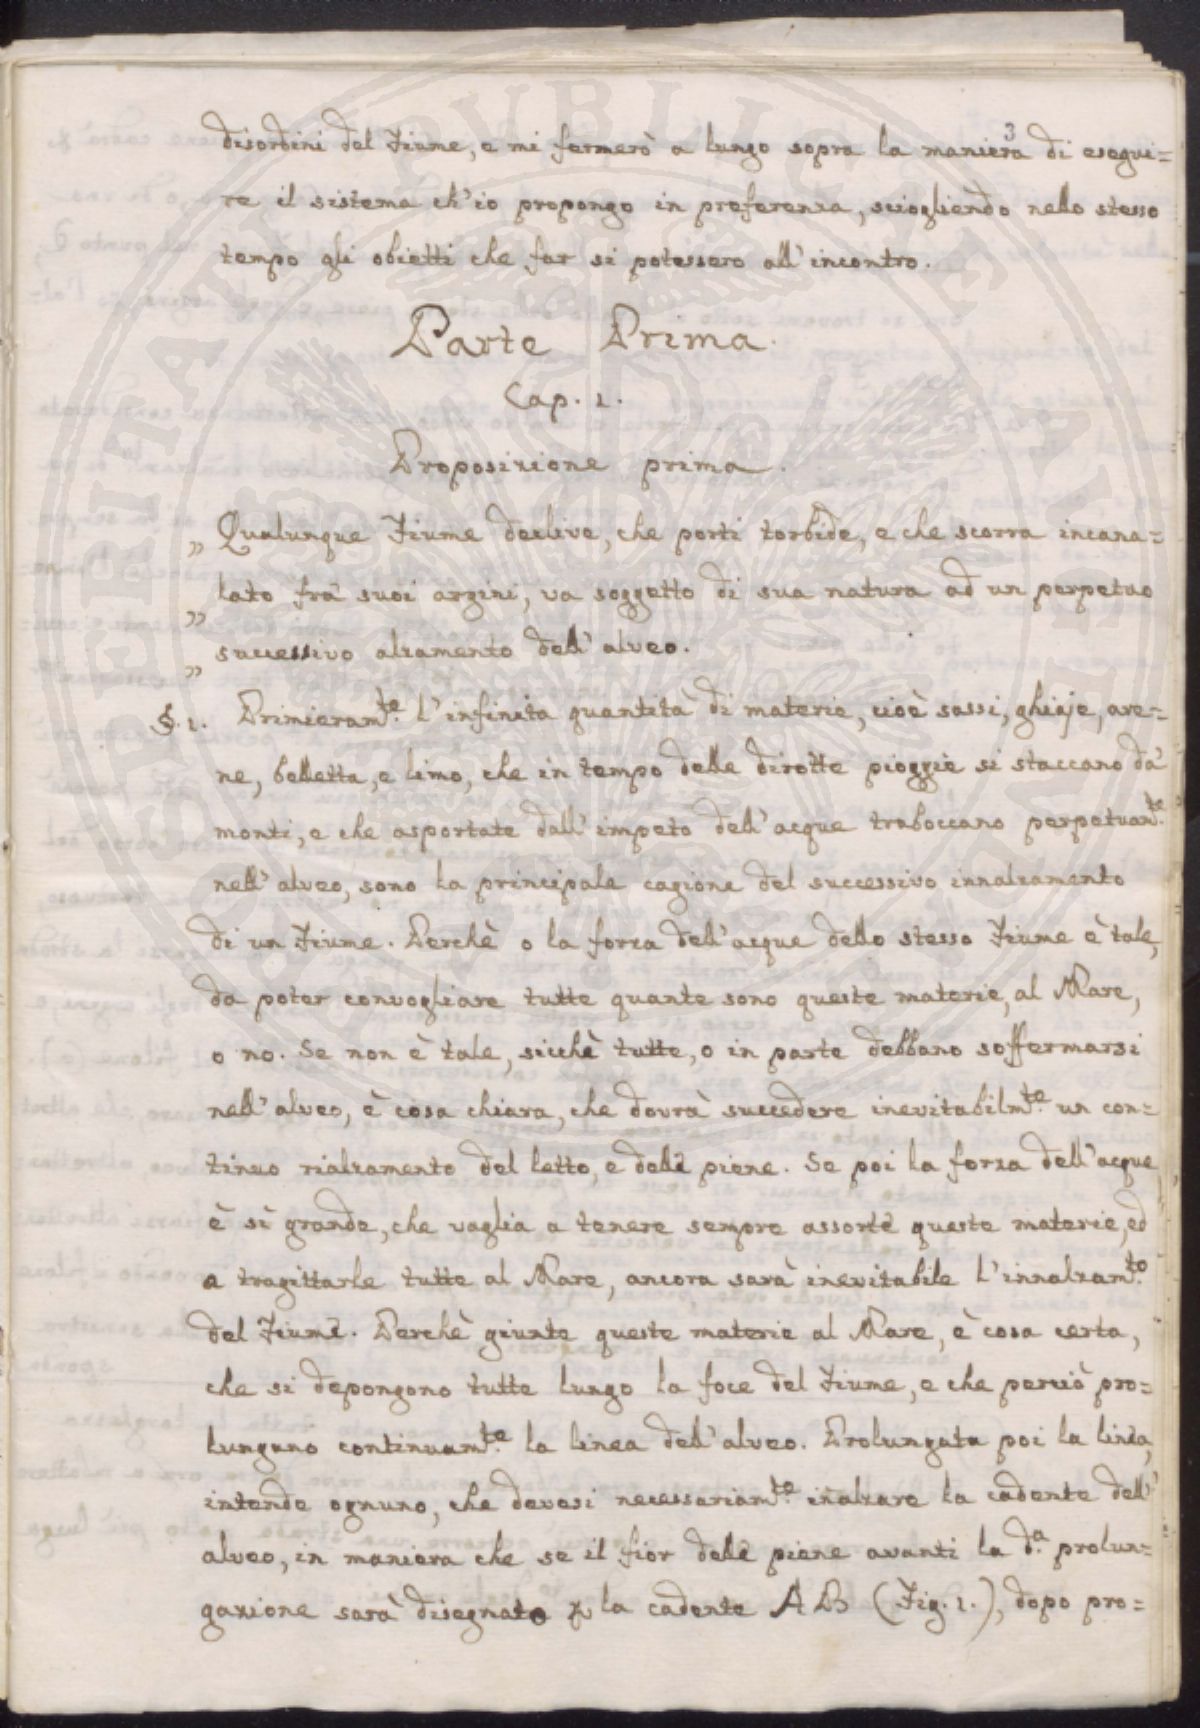 3
disordini del Fiume, e mi fermerò a lungo sopra la maniera di esegui=
re il sistema ch'io propongo in preferenza, sciogliendo nello stesso
tempo gli obietti che far si potessero all'incontro.
Parte Prima.
Cap. 1.
Proposizione prima.
„ Qualunque Fiume declive, che porti torbide, e che scorra incana=
„ lato frà suoi argini, va soggetto di sua natura ad un perpetuo
„ successivo alzamento dell'alveo.
§. 1. Primieram.te L'infinita quantità di materie, cioè sassi, ghiaje, are=
ne, belletta, e limo, che in tempo delle dirotte pioggie si staccano dà
monti, e che asportate dall'impeto dell'acque traboccano perpetuam.te
nell'alveo, sono la principale cagione del successivo innalzamento
di un Fiume. Perchè o la forza dell'acque dello stesso Fiume è tale,
da poter convogliare tutte quante sono queste materie, al Mare,
o no. Se non è tale, sicchè tutte, o in parte debbano soffermarsi
nell'alveo, è cosa chiara, che dovrà succedere inevitabilm.te un con=
tinuo rialzamento del letto, e delle piene. Se poi la forza dell'acque
è sì grande, che vaglia a tenere sempre assorte queste materie, ed
a tragittarle tutte al Mare, ancora sarà inevitabile l'innalzam.to
del Fiume. Perchè giunte queste materie al Mare, è cosa certa,
che si depongono tutte lungo la foce del Fiume, e che perciò pro=
lungano continuam.te la linea dell'alveo. Prolungata poi la linea,
intende ognuno, che devesi necessariam.te inalzare la cadente dell'
alveo, in maniera che se il fior delle piene avanti la d.a prolun=
gazione sarà disegnato la cadente AB (Fig. 1.), dopo pro=